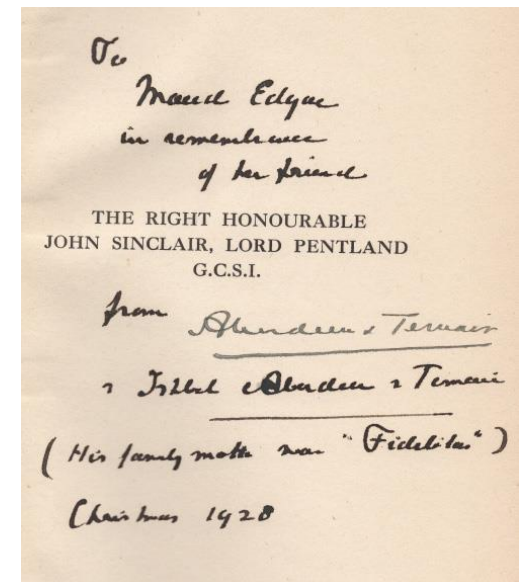 To
Maud Edgar
in remembrance
of her friend
THE RIGHT HONOURABLE
JOHN SINCLAIR, LORD PENTLAND
G.C.S.I.
from Aberdeen & Temair
& Ishbel Aberdeen & Temair
(His family motto was "Fidelitas")
Christmas 1928